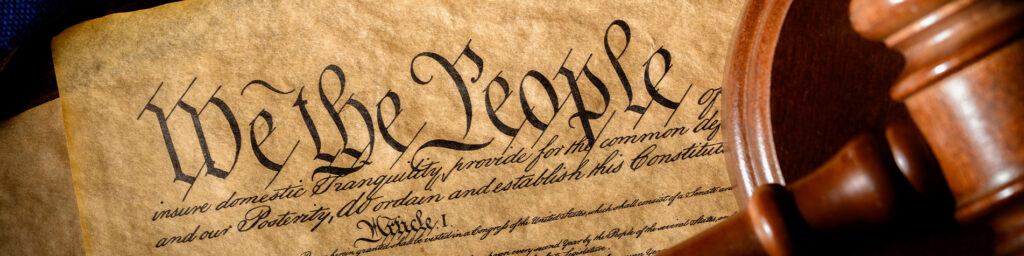 We the People of
insure domestic Tranquility, provide for the common def
and our Posterity, do ordain and establish this Constitut
Article. I.
granted shall be vested in a Congress of the United States, which shall consist of a Senate and
every second Year by the People of the several states, an
Legislature.